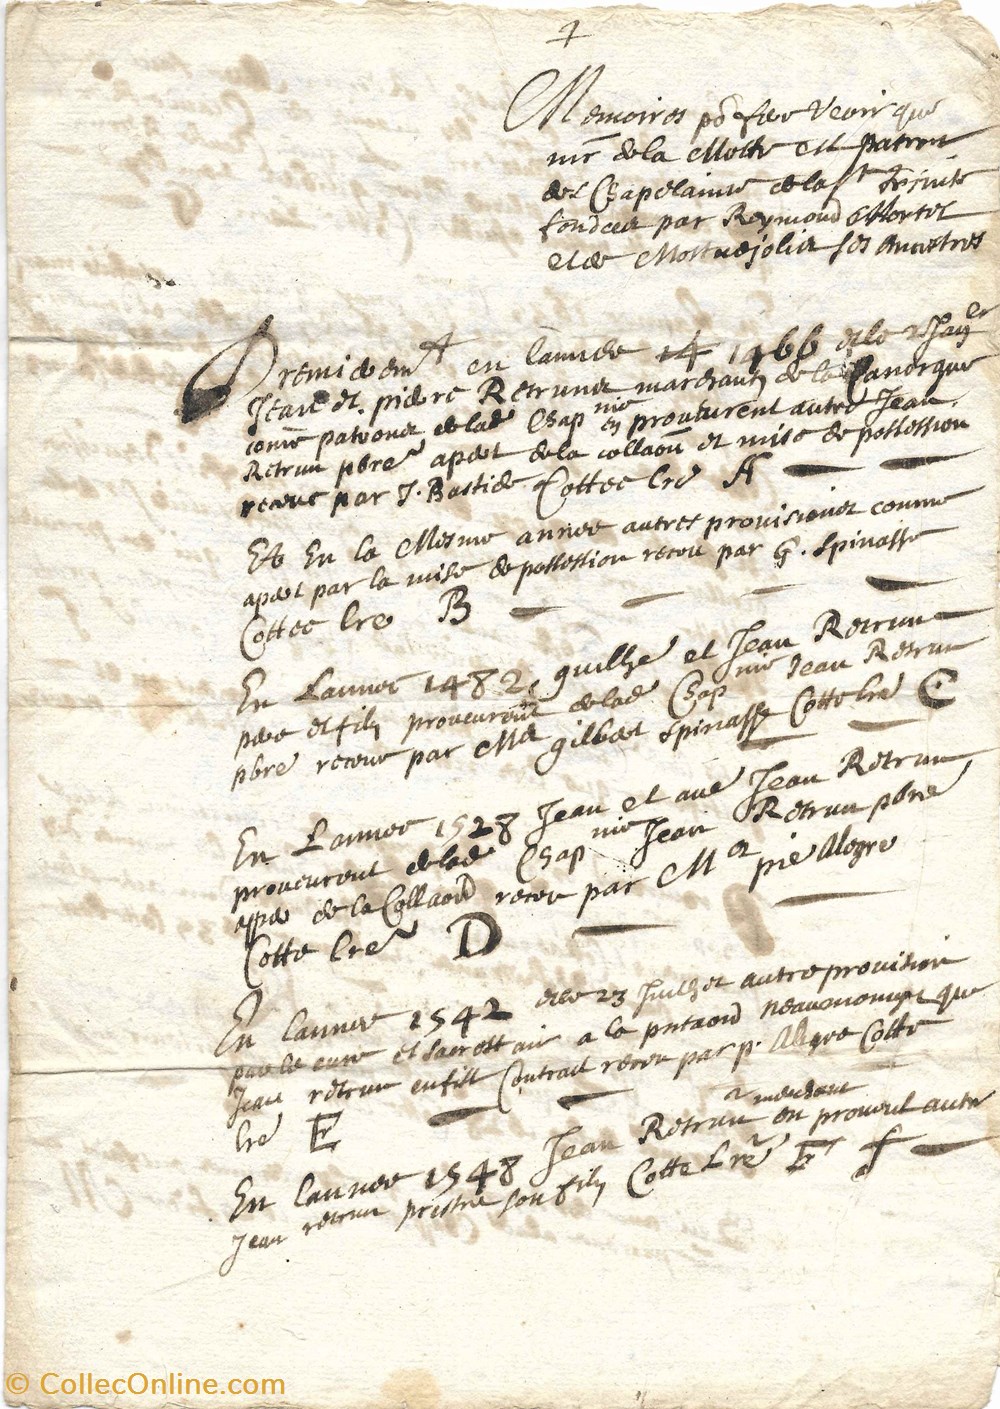 Memoires por fere veoir que
mr de la Motte est patron
des Chapelainie de la ste trinite
fondees par Reymond Mortes
et de Mostuejolis ses Ancetres
Premieremt en lannee 14 1466 et le 2 Janer
Jean et piere Retrunes marchantz de la Canorgue
come patrones de lade Chapnie en prouturent autre Jean
Retrun pbre apert de la collaon et mise de possession
receue par J. Bastide Cottee lre A
Et En la Mesme annee autres provisiones comme
apert par la mise de possession receu par G. Spinasse
Cottee lre B
En Lannee 1482, guilhe et Jean Retrun
pere et filz proveurent de lade Chapnie Jean Retrun
pbre receue par Me gilbert Spinasse Cotte lre C
En Lannee 1528 Jean et aue Jean Retrun
proveurent de lade Chapnie Jean Retrun pbre
appe de la Collaon receu par Mer pie Alegre
Cotte lre D
En lannee 1542 et le 23 Juilhet autre provision
par le cure et sacrestain a la pntaon
Jean retrun en filt Contrait receu par p. Alegre Cotte
lre E
En lannee 1548 Jean Retrun merchant en proveut autre
Jean retrun prestre son filz Cotte Lre E f
© CollecOnline.com